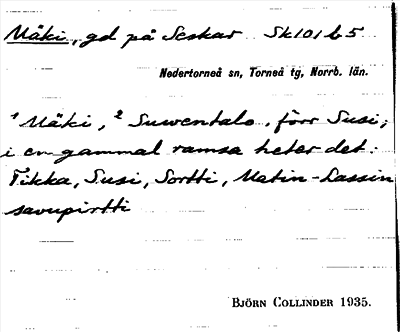 Mäki, gd på Seskar Sk101b5
Nedertorneå sn, Torneå tg, Norrb. län.
¹ Mäki, ² Suwentalo, förr Susi;
i en gammal ramsa heter det:
Tikka, Susi, Sortti, Matin-Lassin
savupirtti
BJÖRN COLLINDER 1935.